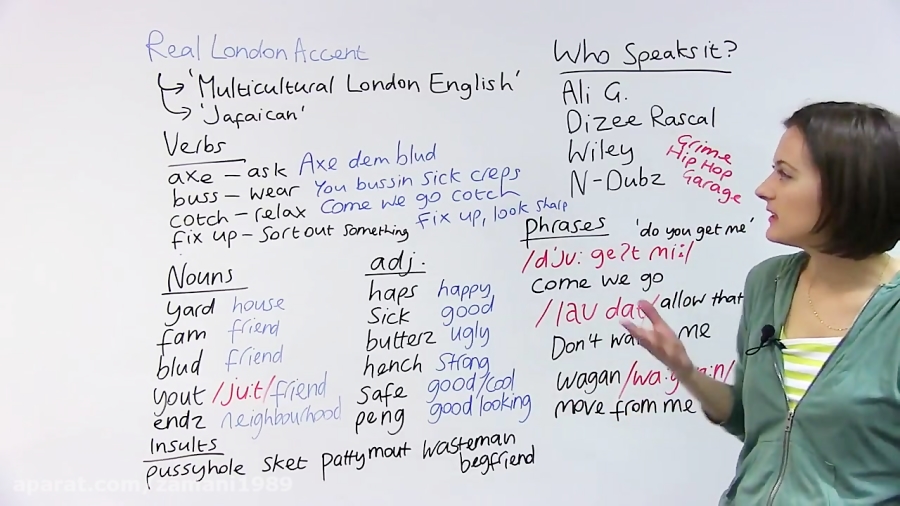 Real London Accent
'Multicultural London English'
'Jafaican'
Verbs
axe – ask Axe dem blud
buss – wear You bussin sick creps
cotch – relax Come we go cotch
fix up – sort out something fix up, look sharp
Nouns
yard house
fam friend
blud friend
yout /ju:t/ friend
endz neighbourhood
adj.
haps happy
sick good
butterz ugly
hench strong
safe good/cool
peng good looking
Insults
pussyhole sket pattymout wasteman
begfriend
Who Speaks it?
Ali G.
Dizee Rascal
Wiley
N-Dubz
Grime
Hip Hop
Garage
phrases 'do you get me'
/d'ju: geʔt mi:/
come we go
/lau allow that
Don't me
wagan
move from me
aparat.com/zamani1989